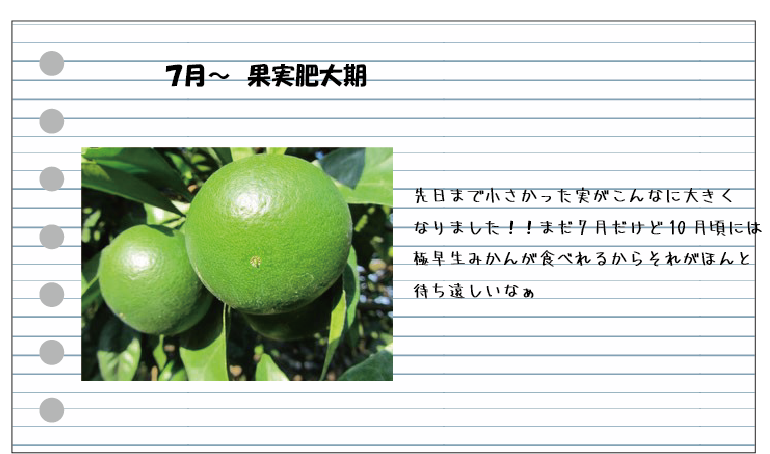 7月～ 果実肥大期
先日まで小さかった実がこんなに大きく
なりました！！まだ7月だけど10月頃には
極早生みかんが食べれるからそれがほんと
待ち遠しいなぁ